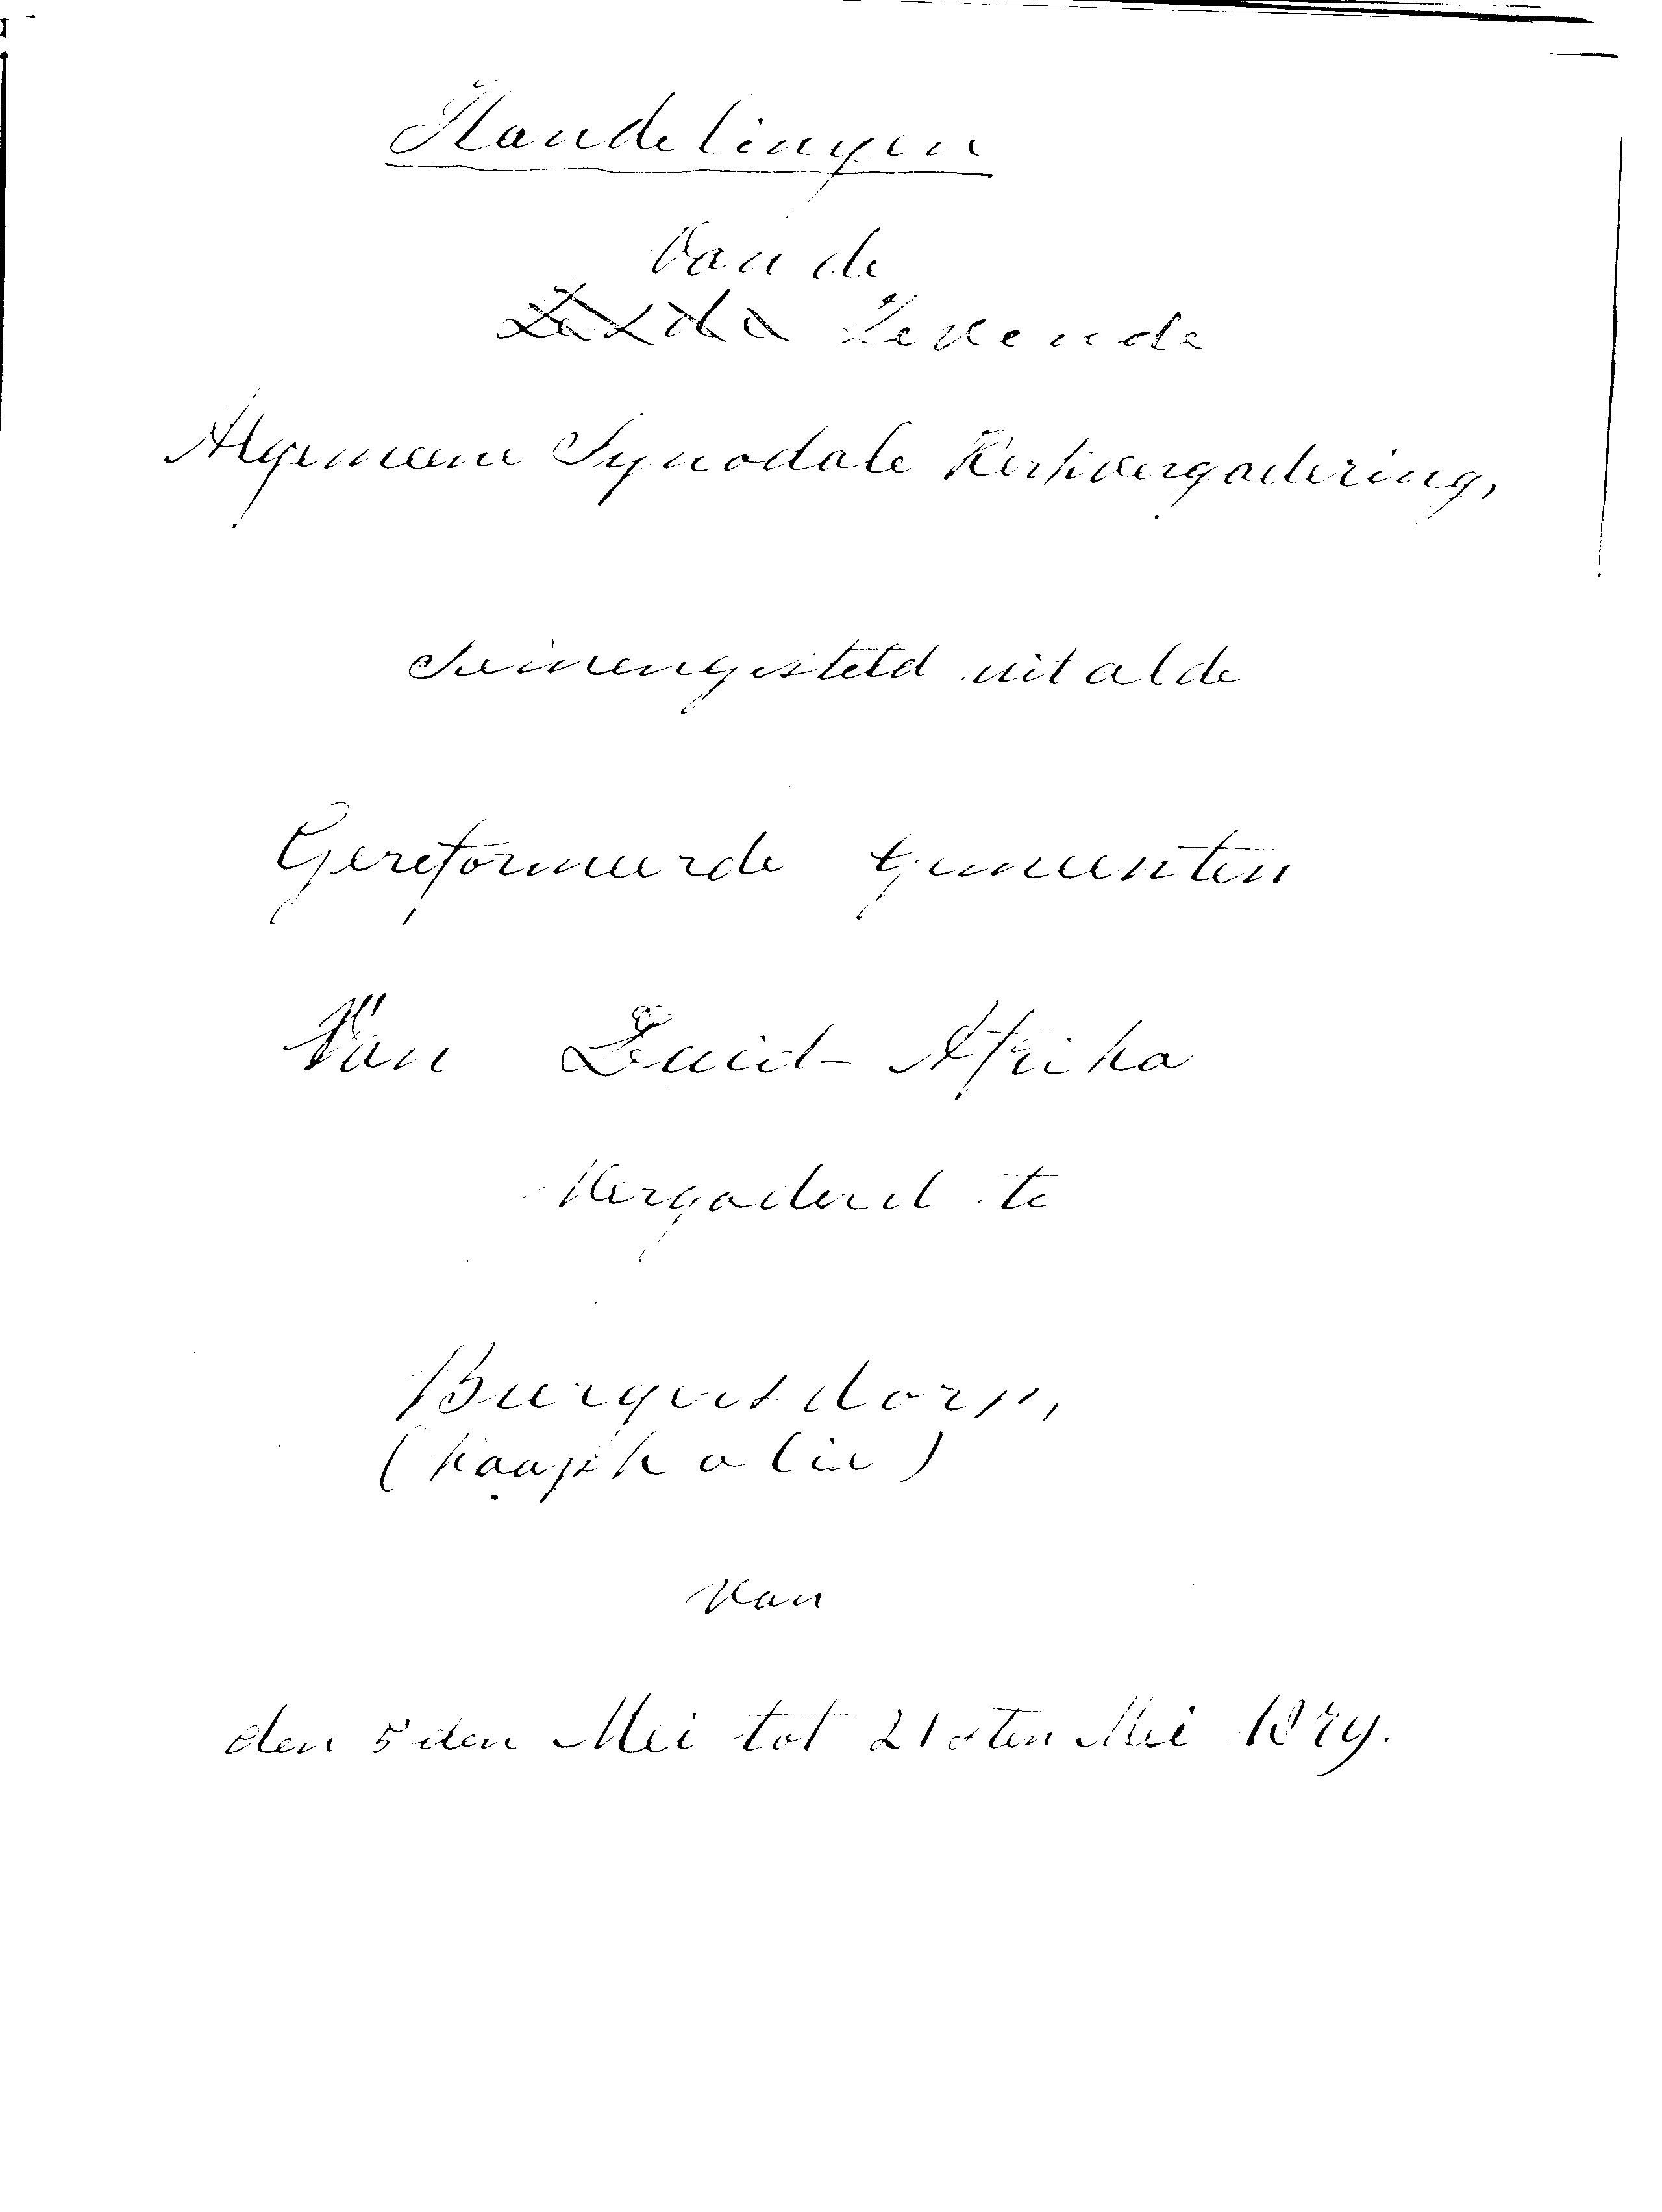 Handelingen
Van de
Zesde Zevende
Algemeene Synodale Kerkvergadering,
Samengesteld uit al de
Gereformeerde Gemeenten
Van Zuid-Afrika
Vergaderd te
Burgersdorp,
(Kaapkolie)
Van
den 5 den Mei tot 21 sten Mei 1879.